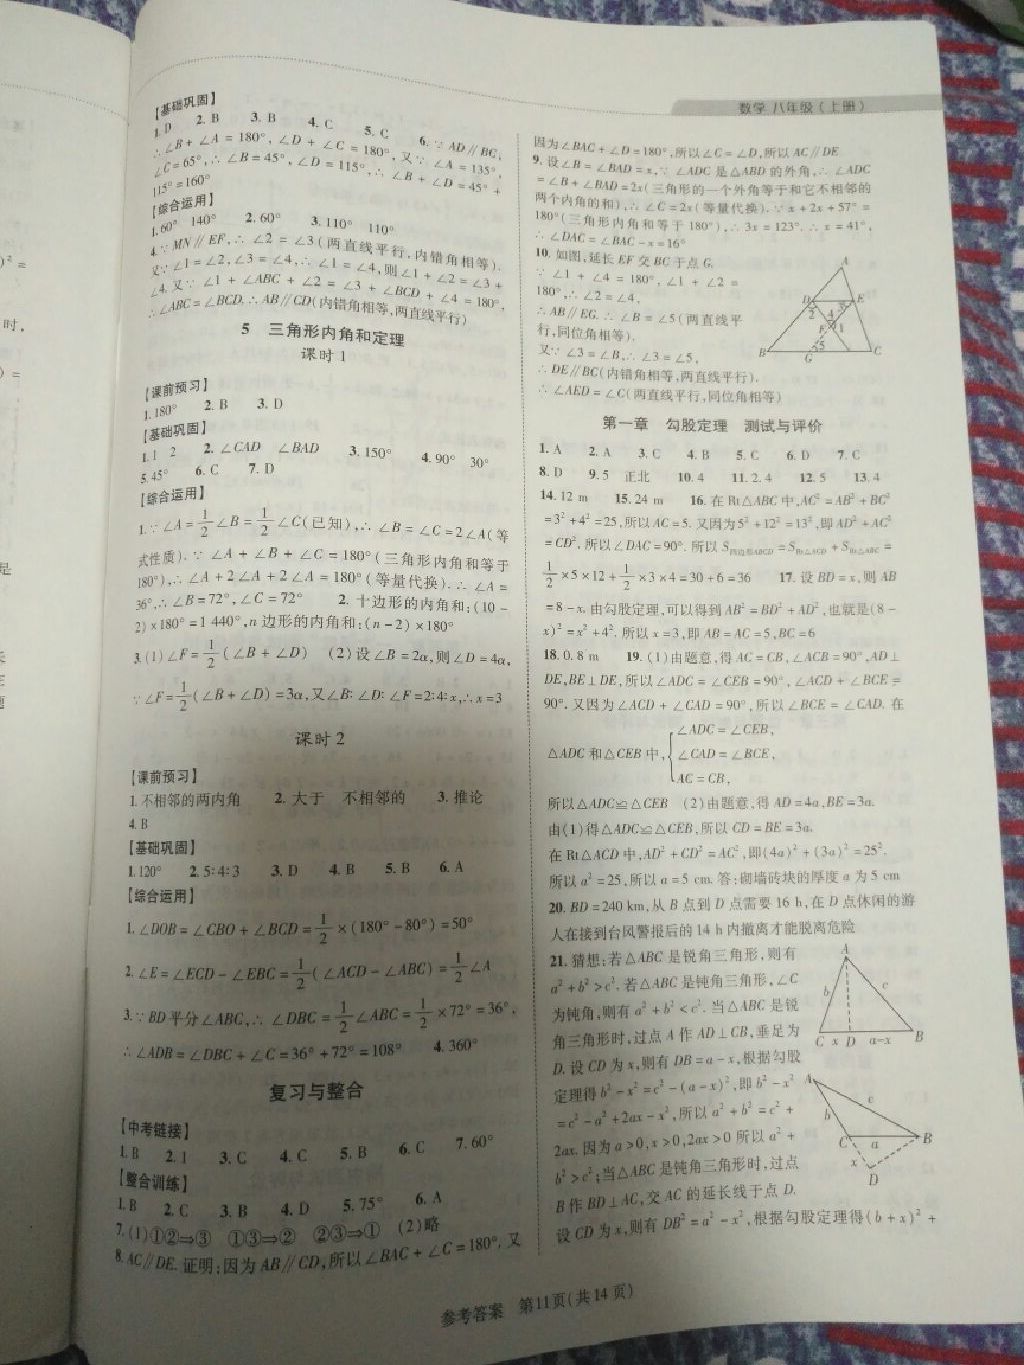 数学 八年级(上册)
【基础巩固】
1. D 2. B 3. B 4. C 5. C 6. ∵AD∥BC,
∴∠B+∠A=180°,∠D+∠C=180°,又∵∠A=135°,
∠C=65°,∴∠B=45°,∠D=115°,∴∠B+∠D=45°+
115°=160°
【综合运用】
1. 60° 140° 2. 60° 3. 110° 110°
4. ∵MN∥EF,∴∠2=∠3(两直线平行,内错角相等).
又∵∠1=∠2,∠3=∠4,∴∠1=∠4,则∠1+∠2=∠3+
∠4. 又∵∠1+∠ABC+∠2=∠3+∠BCD+∠4=180°,
∴∠ABC=∠BCD. ∴AB∥CD(内错角相等,两直线平行)
5 三角形内角和定理
课时1
【课前预习】
1. 180° 2. B 3. D
【基础巩固】
1. 1 2 2. ∠CAD ∠BAD 3. 150° 4. 90° 30°
5. 45° 6. C 7. D
【综合运用】
1. ∵∠A=1/2∠B=1/2∠C(已知),∴∠B=∠C=2∠A(等
式性质). ∵∠A+∠B+∠C=180°(三角形内角和等于
180°),∴∠A+2∠A+2∠A=180°(等量代换). ∴∠A=
36°,∴∠B=72°,∠C=72° 2. 十边形的内角和:(10-
2)×180°=1 440°,n边形的内角和:(n-2)×180°
3. (1)∠F=1/2(∠B+∠D) (2)设∠B=2α,则∠D=4α,
∵∠F=1/2(∠B+∠D)=3α,又∠B∶∠D∶∠F=2∶4∶x,∴x=3
课时2
【课前预习】
1. 不相邻的两内角 2. 大于 不相邻的 3. 推论
4. B
【基础巩固】
1. 120° 2. 5∶4∶3 3. D 4. B 5. B 6. A
【综合运用】
1. ∠DOB=∠CBO+∠BCD=1/2×(180°-80°)=50°
2. ∠E=∠ECD-∠EBC=1/2(∠ACD-∠ABC)=1/2∠A
3. ∵BD平分∠ABC,∴∠DBC=1/2∠ABC=1/2×72°=36°,
∴∠ADB=∠DBC+∠C=36°+72°=108° 4. 360°
复习与整合
【中考链接】
1. B 2. 1 3. C 4. C 5. B 6. C 7. 60°
【整合训练】
1. B 2. C 3. B 4. D 5. 75° 6. A
7. (1)①②⇒③ ①③⇒② ②③⇒① (2)略
8. AC∥DE. 证明:因为AB∥CD,所以∠BAC+∠C=180°. 又
因为∠BAC+∠D=180°,所以∠C=∠D,所以AC∥DE
9. 设∠B=∠BAD=x,∵∠ADC是△ABD的外角,∴∠ADC
=∠B+∠BAD=2x(三角形的一个外角等于和它不相邻的
两个内角的和),∴∠C=2x(等量代换). ∵x+2x+57°=
180°(三角形内角和等于180°),∴3x=123°. ∴x=41°,
∴∠DAC=∠BAC-x=16°
10. 如图,延长EF交BC于点G.
∵∠1+∠4=180°,∠1+∠2=
180°,∴∠2=∠4,
∴AB∥EG. ∴∠B=∠5(两直线平
行,同位角相等).
又∵∠3=∠B,∴∠3=∠5,
∴DE∥BC(内错角相等,两直线平行).
∴∠AED=∠C(两直线平行,同位角相等)
A
D E
2 4 3
F 1
5
B G C
第一章 勾股定理 测试与评价
1. A 2. A 3. C 4. B 5. C 6. D 7. C
8. D 9. 5 正北 10. 4 11. 2.4 12. 5 13. 4
14. 12 m 15. 24 m 16. 在Rt△ABC中,AC²=AB²+BC²
=3²+4²=25,所以AC=5. 又因为5²+12²=13²,即AD²+AC²
=CD²,所以∠DAC=90°. 所以S四边形ABCD=SRt△ACD+SRt△ABC=
1/2×5×12+1/2×3×4=30+6=36 17. 设BD=x,则AB
=8-x. 由勾股定理,可以得到AB²=BD²+AD²,也就是(8-
x)²=x²+4². 所以x=3,即AB=AC=5,BC=6
18. 0.8 m 19. (1)由题意,得AC=CB,∠ACB=90°,AD⊥
DE,BE⊥DE,所以∠ADC=∠CEB=90°,∠ACD+∠BCE=
90°. 又因为∠ACD+∠CAD=90°,所以∠BCE=∠CAD. 在
∠ADC=∠CEB,
△ADC和△CEB中, ∠CAD=∠BCE,
AC=CB,
所以△ADC≌△CEB (2)由题意,得AD=4a,BE=3a.
由(1)得△ADC≌△CEB,所以CD=BE=3a.
在Rt△ACD中,AD²+CD²=AC²,即(4a)²+(3a)²=25².
所以a²=25,所以a=5 cm. 答:砌墙砖块的厚度a为5 cm
20. BD=240 km,从B点到D点需要16 h,在D点休闲的游
人在接到台风警报后的14 h内撤离才能脱离危险
21. 猜想:若△ABC是锐角三角形,则有
a²+b²>c². 若△ABC是钝角三角形,∠C
为钝角,则有a²+b²<c². 当△ABC是锐
角三角形时,过点A作AD⊥CB,垂足为
D. 设CD为x,则有DB=a-x,根据勾股
定理得b²-x²=c²-(a-x)²,即b²-x²
=c²-a²+2ax-x²,所以a²+b²=c²+
2ax. 因为a>0,x>0,2ax>0所以a²+
b²>c²;当△ABC是钝角三角形时,过点
B作BD⊥AC,交AC的延长线于点D.
设CD为x,则有DB²=a²-x²,根据勾股定理得(b+x)²+
A
b c
C x D a-x B
A
b c
C a B
x
D
参考答案 第11页(共14页)